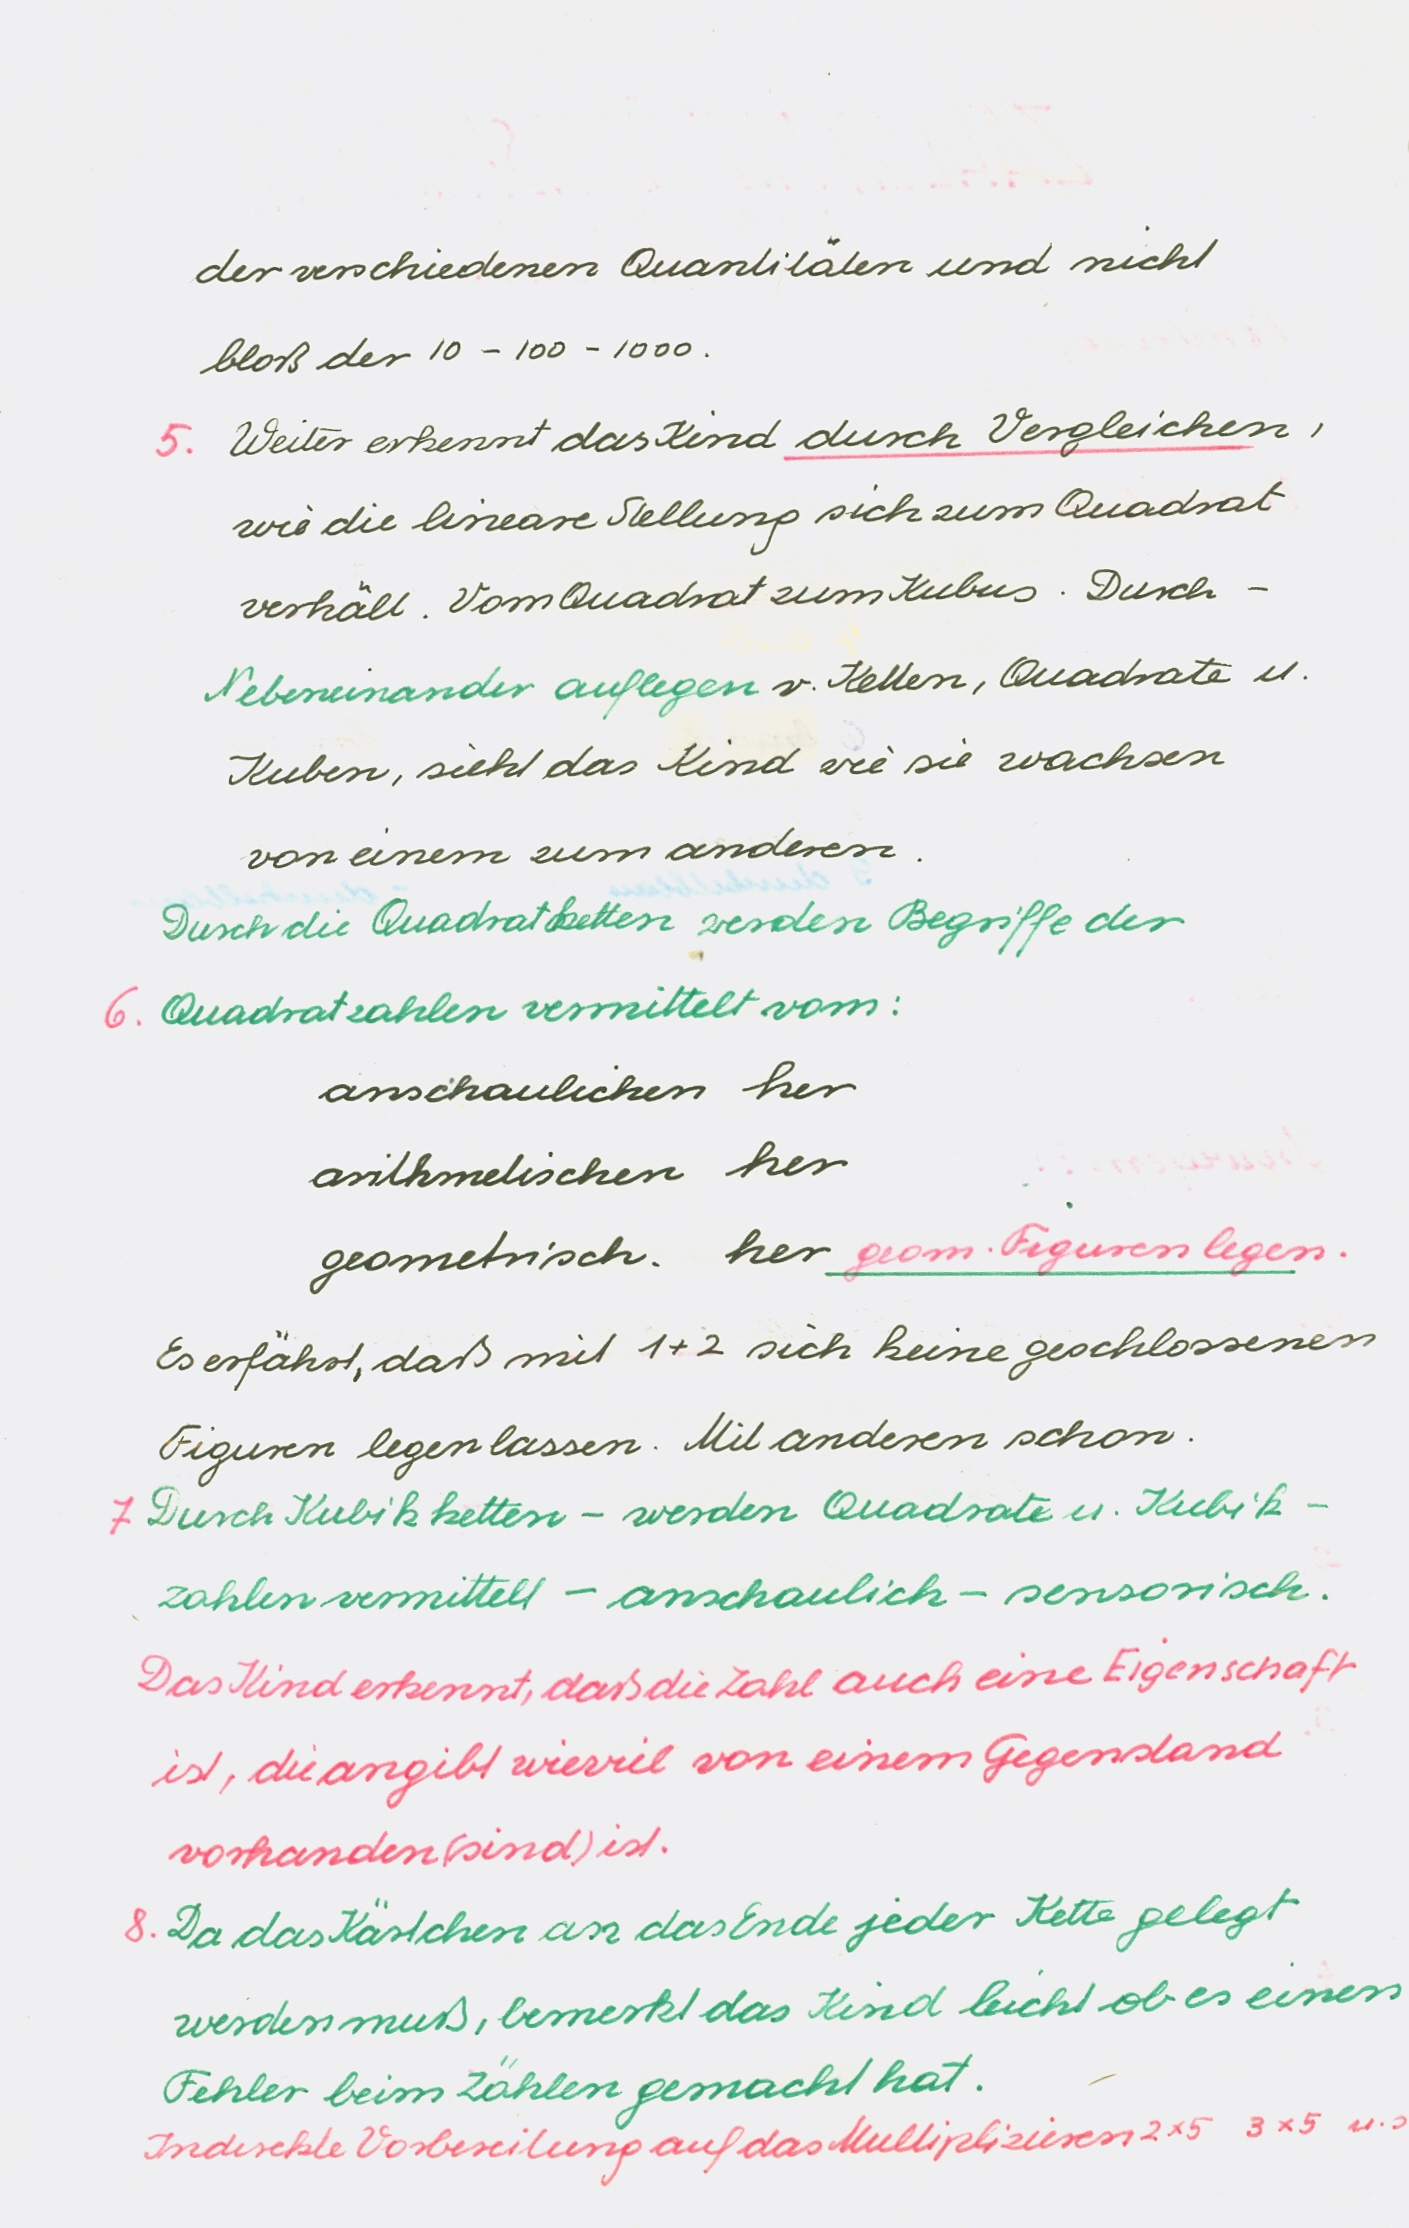 der verschiedenen Quantitäten und nicht
bloß der 10 - 100 - 1000.
5. Weiter erkennt das Kind durch Vergleichen,
wie die lineare Stellung sich zum Quadrat
verhält. Vom Quadrat zum Kubus. Durch -
Nebeneinander auflegen v. Ketten, Quadrate u.
Kuben, sieht das Kind wie sie wachsen
von einem zum anderen.
Durch die Quadratketten werden Begriffe der
6. Quadratzahlen vermittelt vom:
anschaulichen her
arithmetischen her
geometrisch. her geom. Figuren legen.
Es erfährt, daß mit 1+2 sich keine geschlossenen
Figuren legen lassen. Mit anderen schon.
7 Durch Kubikketten - werden Quadrate u. Kubik -
zahlen vermittelt - anschaulich - sensorisch.
Das Kind erkennt, daß die Zahl auch eine Eigenschaft
ist, die angibt wieviel von einem Gegenstand
vorhanden (sind) ist.
8. Da das Kärtchen an das Ende jeder Kette gelegt
werden muß, bemerkt das Kind leicht ob es einen
Fehler beim Zählen gemacht hat.
Indirekte Vorbereitung auf das Multiplizieren 2x5 3x5 u.s